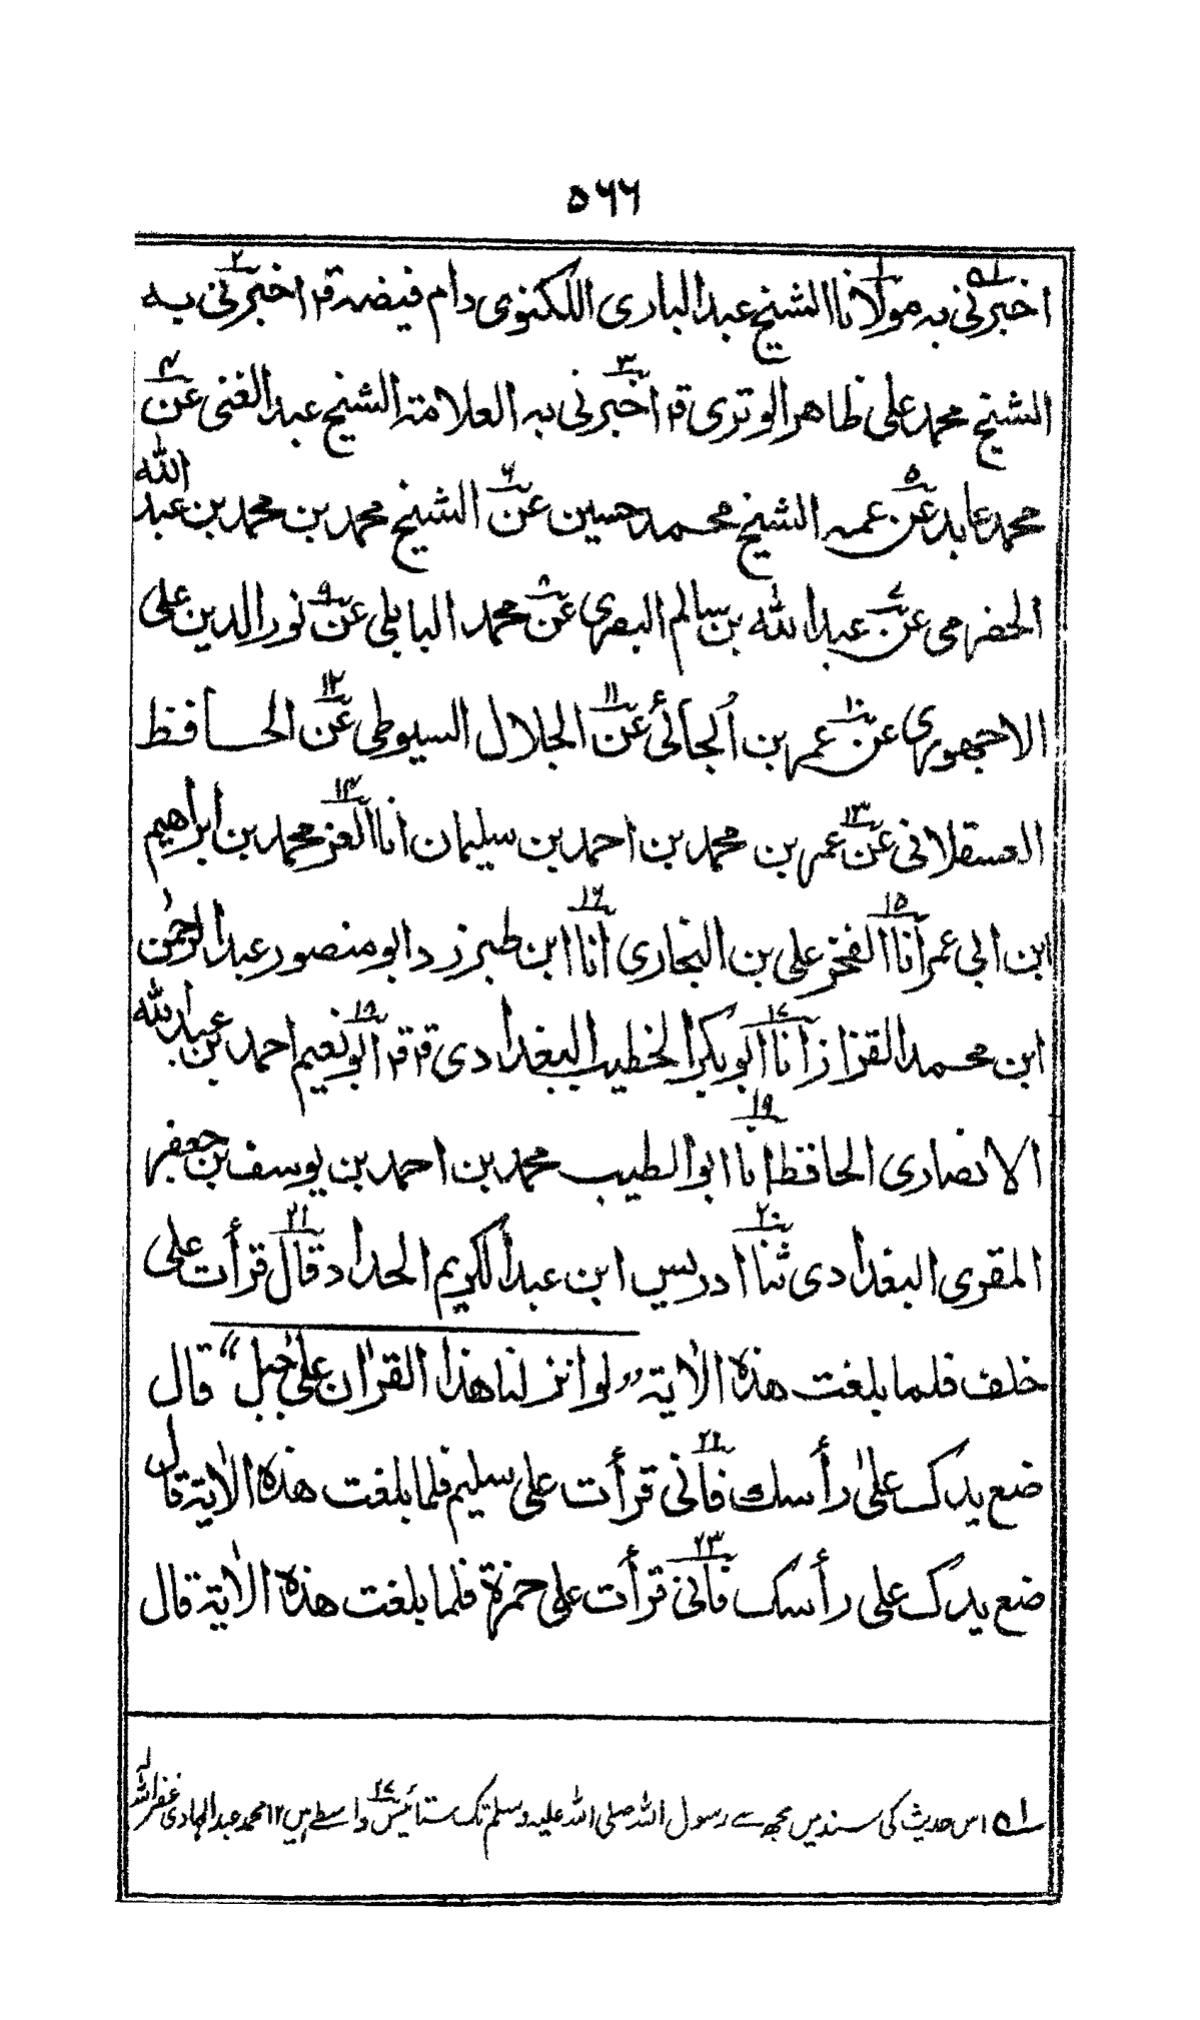 ٥٦٦
اخبرنی بہ مولانا الشیخ عبدالباری اللکنوی دام فیضہ قم اخبرنی بہ
الشیخ محمد علی ظاہر الوتری قم اخبرنی بہ العلامۃ الشیخ عبدالغنی عن
محمد عابد عن عمہ الشیخ محمد حسین عن الشیخ محمد بن محمد بن عبد اللہ
الحضرمی عن عبداللہ بن سالم البصری عن محمد البابلی عن نورالدین علی
الاجہوری عن عمر بن الجائی عن الجلال السیوطی عن الحافظ
العسقلانی عن عمر بن محمد بن احمد بن سلیمان انا العز محمد بن ابراھیم
ابن ابی عمر انا الفخر علی بن البخاری انا ابن طبرزد ابو منصور عبدالرحمٰن
ابن محمد القزاز انا ابوبکر الخطیب البغدادی قم قم ابو نعیم احمد بن عبداللہ
الانصاری الحافظ انا ابو الطیب محمد بن احمد بن یوسف بن جعفر
المقری البغدادی ثنا ادریس ابن عبدالکریم الحداد قال قرأت علی
خلف فلما بلغت ھذہ الاٰیۃ ،،لو انزلنا ھذا القراٰن علیٰ جبل“ قال
ضع یدک علیٰ رأسک فانی قرأت علی سلیم فلما بلغت ھذہ الاٰیۃ قال
ضع یدک علی رأسک فانی قرأت علی حمزۃ فلما بلغت ھذہ الاٰیۃ قال
۱؎ اس حدیث کی سند میں مجھ سے رسول اللہ صلی اللہ علیہ وسلم تک ستائیس ۲۷ واسطے ہیں ۱۲ محمد عبدالہادی غفر لہ اللہ